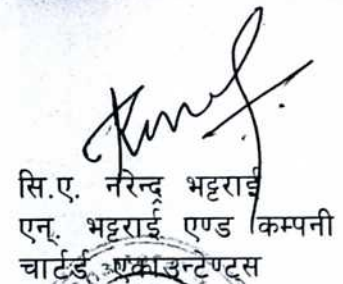 सि.ए. नरेन्द्र भट्टराई
एन्. भट्टराई एण्ड कम्पनी
चार्टर्ड एकाउन्टेण्ट्स